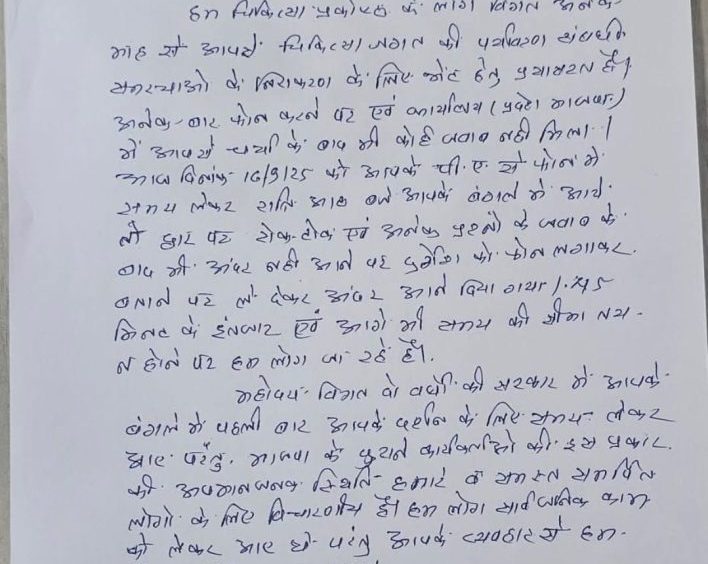 हम चिकित्सा प्रकोष्ठ के लोग विगत अनेक
माह से आपसे चिकित्सा जगत की पर्यावरण संबंधी
समस्याओ के निराकरण के लिए भेंट हेतु प्रयासरत हैं।
अनेक बार फोन करने पर एवं कार्यालय (प्रदेश भाजपा)
में आपसे चर्चा के बाद भी कोई जवाब नही मिला।
आज दिनांक 16/9/25 को आपके पी.ए. से फोन में
समय लेकर रात्रि आठ बजे आपके बंगले में आये
तो द्वार पर रोक-टोक एवं अनेक प्रश्नो के जवाब के
बाद भी अंदर नही आने पर को फोन लगाकर
बताने पर देकर अंदर आने दिया गया। 45
मिनट के इंतजार एवं आगे भी समय की सीमा तय
न होने पर हम लोग जा रहे हैं।
महोदय विगत दो वर्षो की सरकार में आपके
बंगले में पहली बार आपके दर्शन के लिए समय लेकर
आए परंतु भाजपा के पुराने कार्यकर्ताओ की इस प्रकार
की अपमानजनक स्थिति हमारे व समस्त समर्पित
लोगो के लिए विचारणीय है। हम लोग सार्वजनिक काम
को लेकर आए थे परंतु आपके व्यवहार से हम